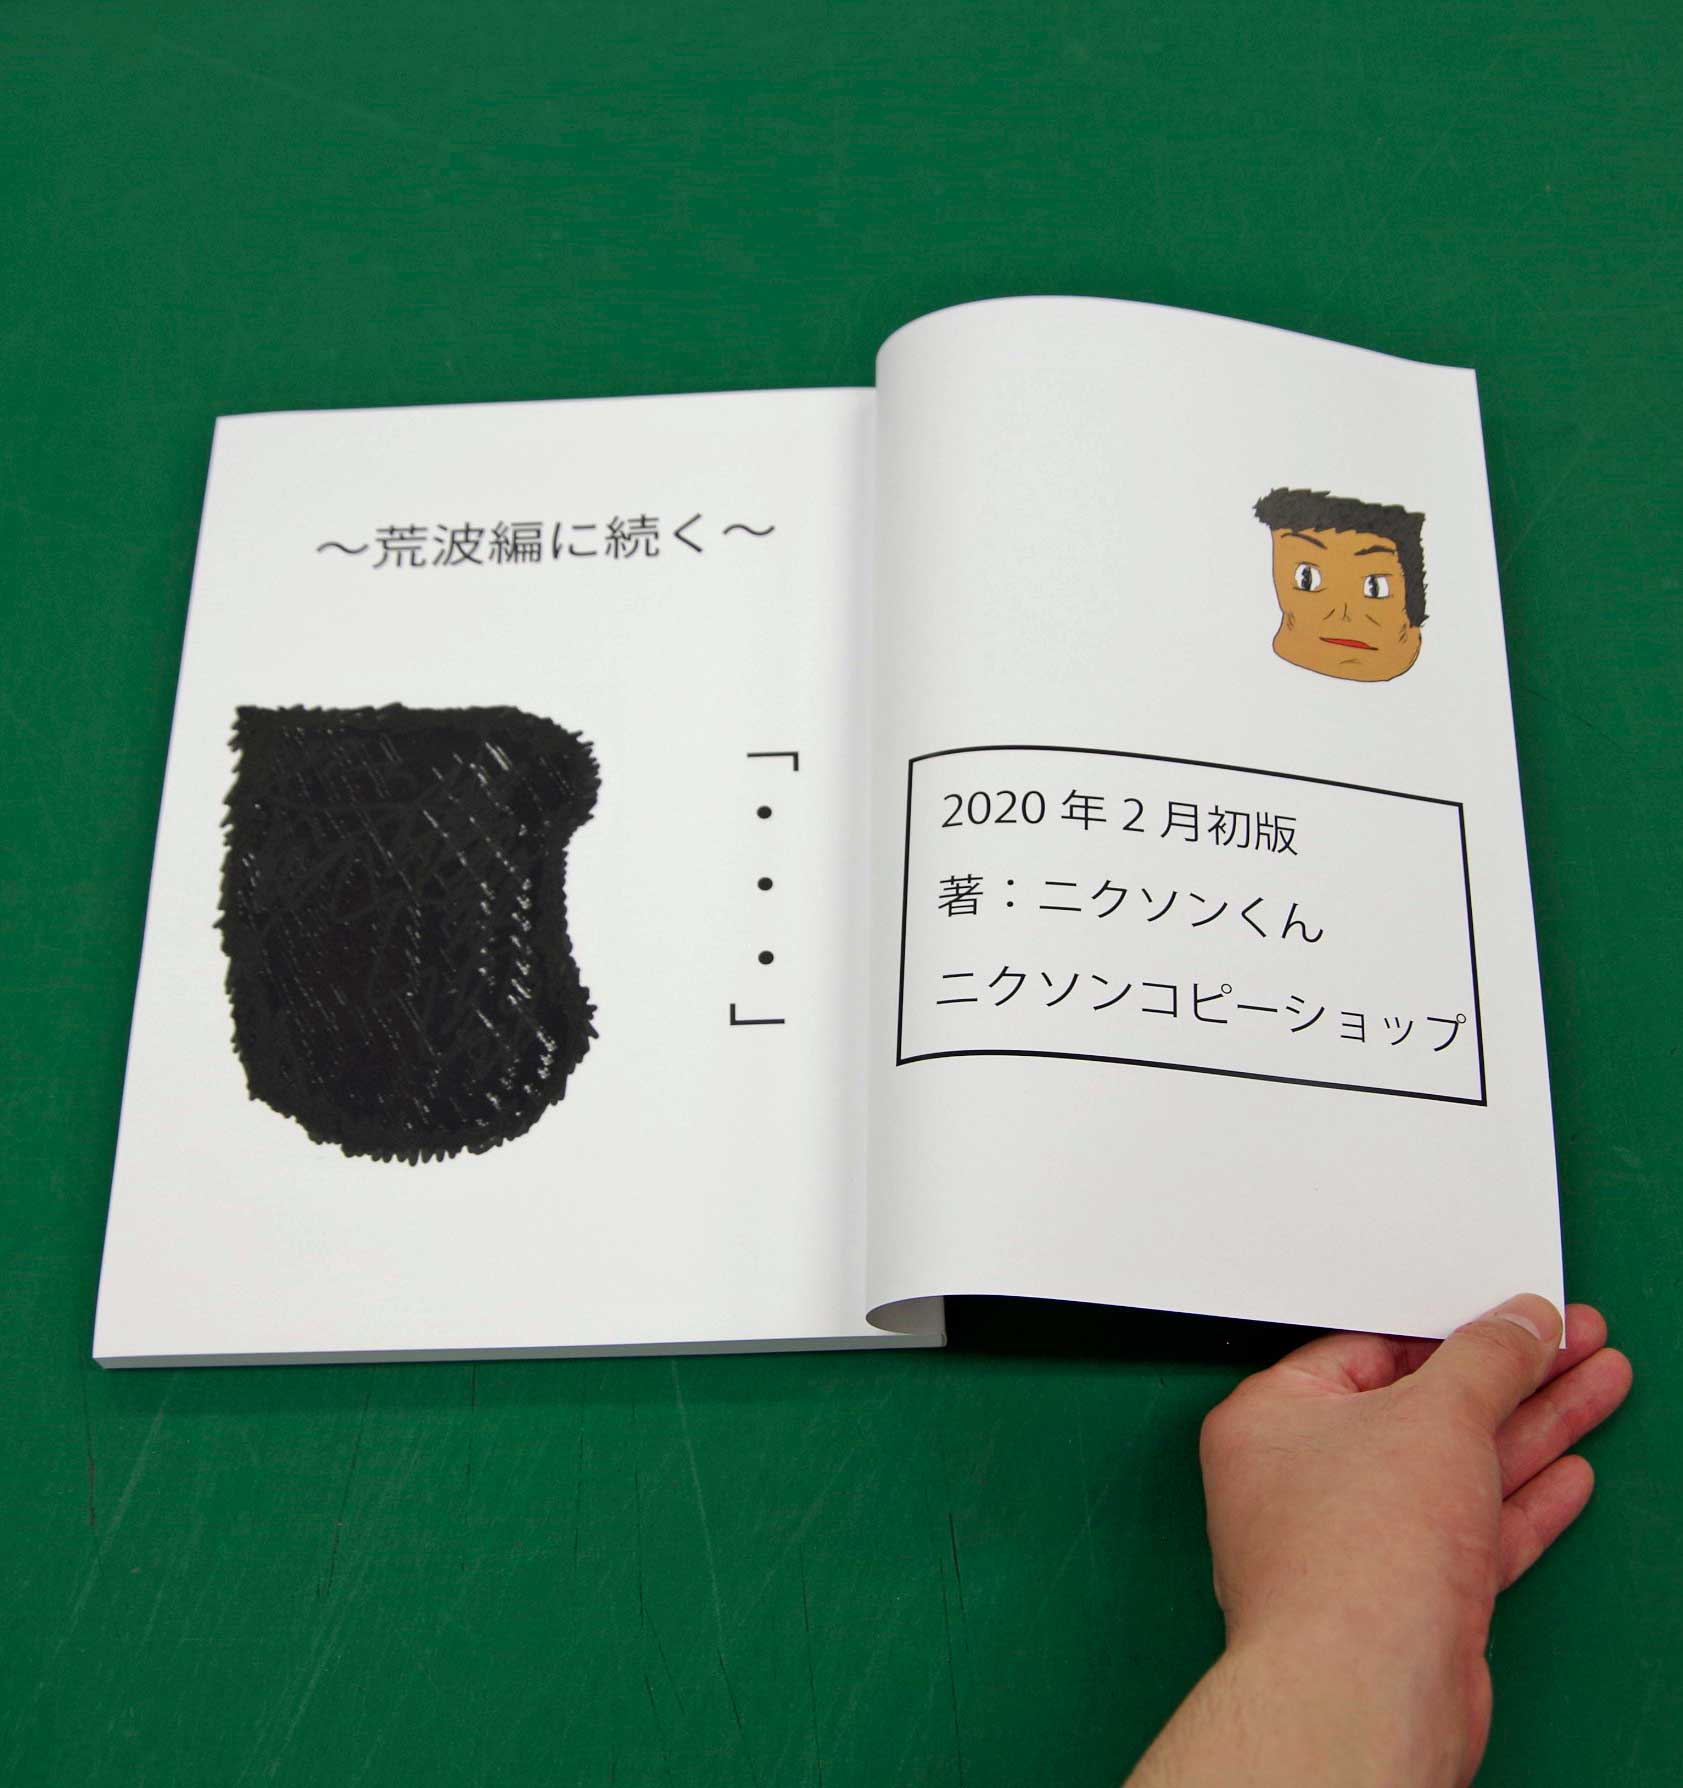 ～荒波編に続く～
「・・・」
2020年2月初版
著：ニクソンくん
ニクソンコピーショップ